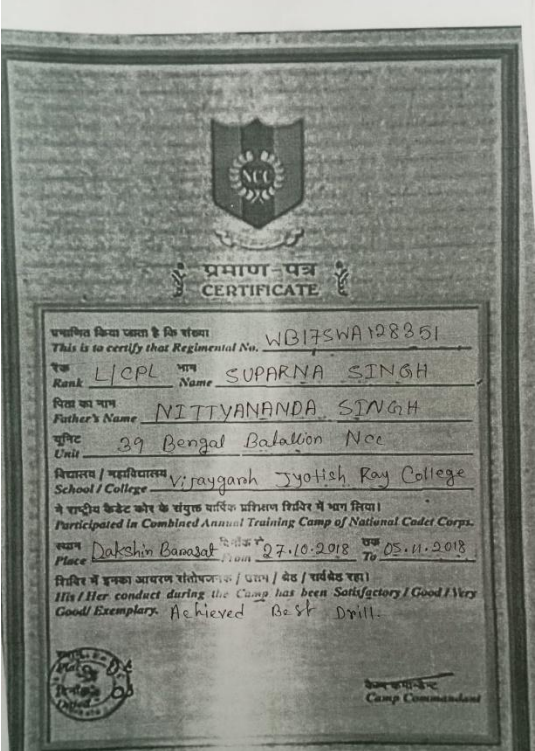 NCC
प्रमाण-पत्र
CERTIFICATE
प्रमाणित किया जाता है कि संख्या
This is to certify that Regimental No. WB17SWA128351
रैंक नाम
Rank L/CPL Name SUPARNA SINGH
पिता का नाम
Father's Name NITTYANANDA SINGH
यूनिट
Unit 39 Bengal Batallion Ncc
विद्यालय / महाविद्यालय
School / College Vijaygarh Jyotish Ray College
ने राष्ट्रीय कैडेट कोर के संयुक्त वार्षिक प्रशिक्षण शिविर में भाग लिया।
Participated in Combined Annual Training Camp of National Cadet Corps.
स्थान दिनांक से तक
Place Dakshin Barasat From 27.10.2018 To 05.11.2018
शिविर में इनका आचरण संतोषजनक / उत्तम / श्रेष्ठ / सर्वश्रेष्ठ रहा।
His / Her conduct during the Camp has been Satisfactory / Good / Very
Good / Exemplary. Achieved Best Drill.
दिनांक
Dated
कैम्प कमाण्डेन्ट
Camp Commandant